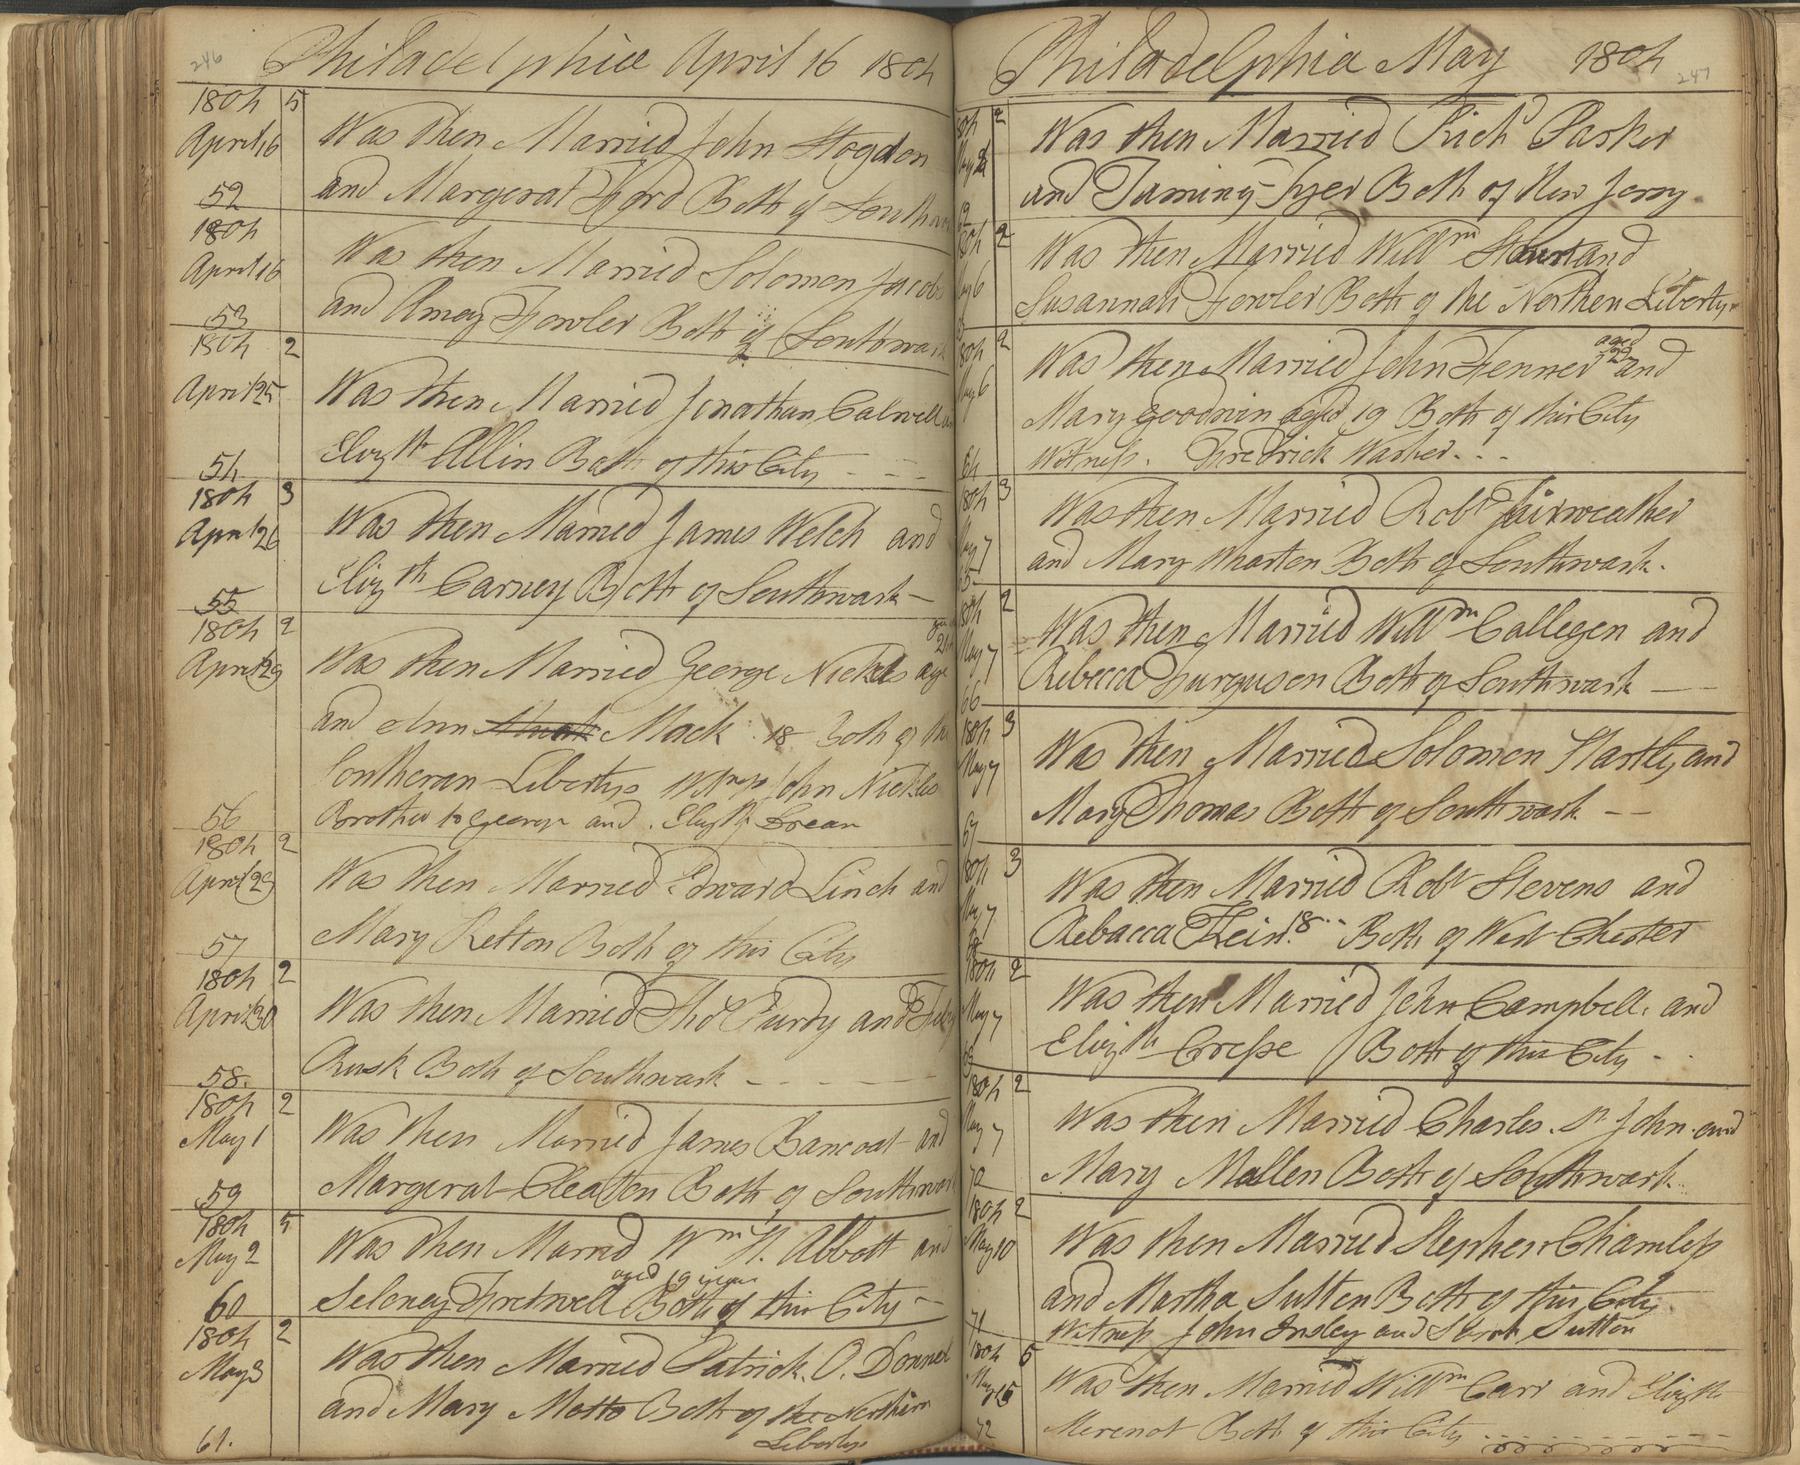 246
Philadelphia April 16 1804
1804 5
April 16 Was then Married John Hogdon
52 and Margerat Hord Both of Southwar
1804
April 16 Was then Married Solomon Jacobs
53 and Amey Fowler Both of Southwark
1804 2
April 25 Was then Married Jonathan Calwell
54 Elizth Allin Both of this City - - -
1804 3
April 26 Was then Married James Welch and
55 Elizth Carney Both of Southwark —
1804 2
April 29 Was then Married George Nickels age
21
and Ann Mack 18 Both of the
Southeran Libertys Witness John Nickles
56 Brother to George and Elizth Drean
1804 2
April 29 Was then Married Edward Linch and
57 Mary Retton Both of this City
1804 2
April 30 Was then Married Tho Purdy and
58. Rusk Both of Southwark - - - - -
1804 2
May 1 Was then Married James Bancoat and
59 Margerat Cleaton Both of Southwar
1804 5
May 2 Was then Married Wm H. Abbott and
aged 19 years
60 Seloney Fretwell Both of this City —
1804 2
May 3 Was then Married Patrick. O. Donnel
and Mary Motto Both of the Northern
61. Libertys
Philadelphia May 1804
247
2
Was then Married Richd Parker
and Taming Tyer Both of New Jersy.
1804 2
May 6 Was then Married Willm and
Susannah Fowler Both of the Northen Liberty
1804 2
aged
May 6 Was then Married John Fenner and
Mary Goodwin aged 19 Both of this City
64 Witness. Fredrick Warner. . .
1804 3
May 7 Was then Married Robt Fairweather
65 and Mary Wharton Both of Southwark.
1804 2
May 7 Was then Married Willm Callegen and
66 Rebecca Furguson Both of Southwark —
1804 3
May 7 Was then Married Solomon Hartly and
67 Mary Thomas Both of Southwark — —
1804 3
May 7 Was then Married Robt Stevens and
68 Rebacca 18 Both of West Chester
1804 2
May 7 Was then Married John Campbell. and
69 Elizth Cresse Both of this City - .
1804 2
May 7 Was then Married Charles. St John. and
70 Mary Mallen Both of Southwark.
1804 2
May 10 Was then Married Stephen Chamless
and Martha Sutten Both of this City.
71 Witness John Insley and Sarah Sutton
1804 5
May 15 Was then Married Willm Carr and Elizth
72 Merenot Both of this City